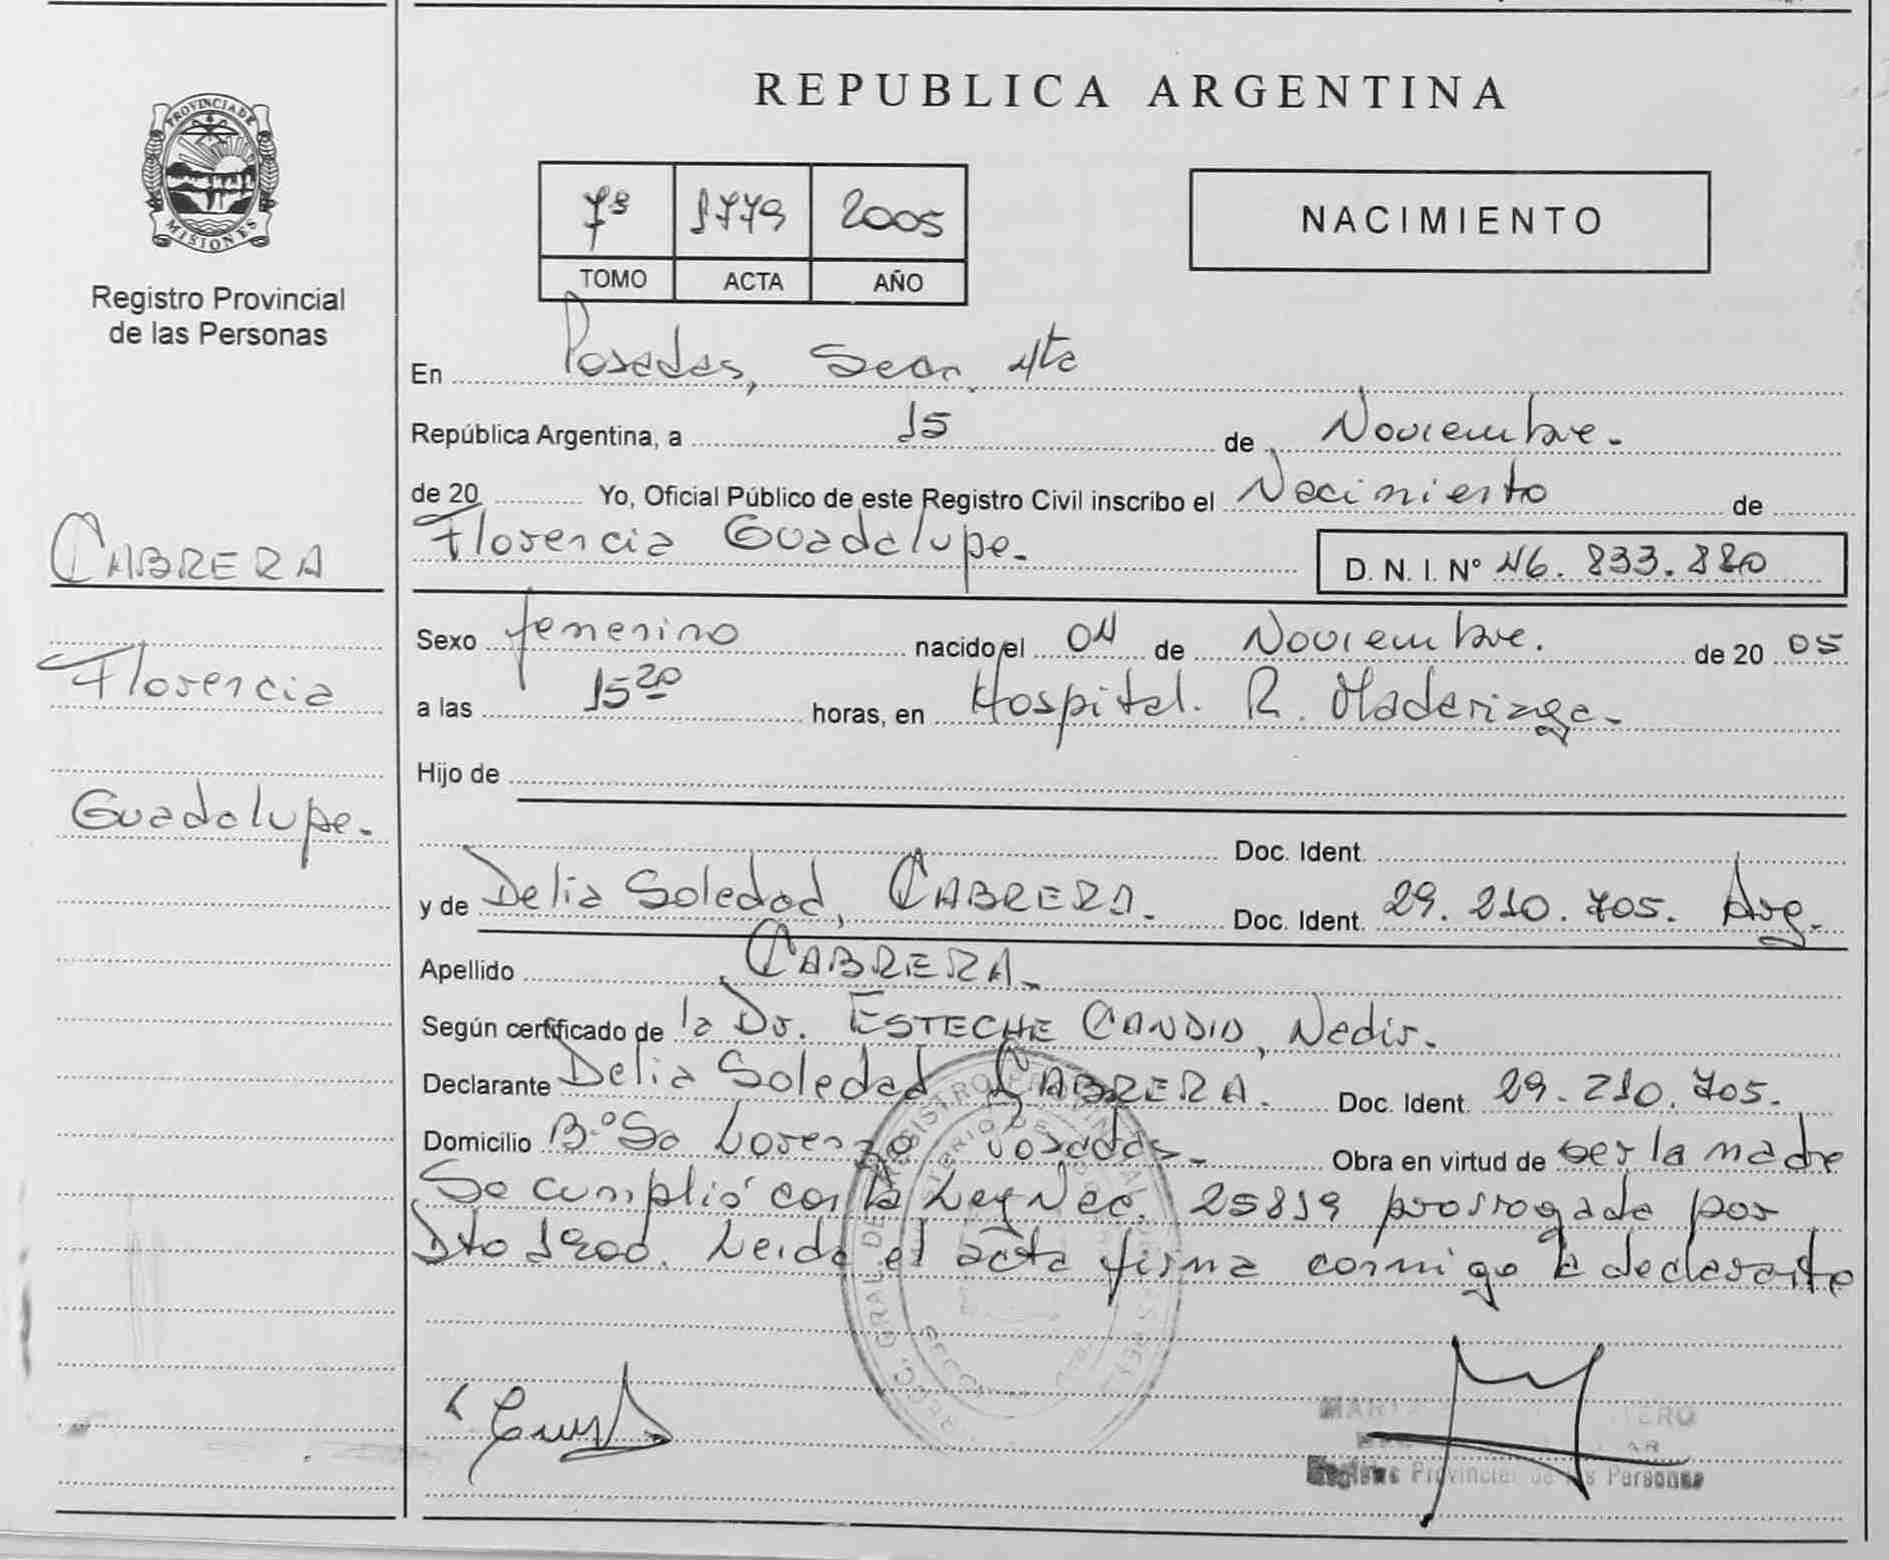 REPUBLICA ARGENTINA
PROVINCIA DE
MISIONES
Registro Provincial
de las Personas
7º 1779 2005
TOMO ACTA AÑO
NACIMIENTO
En Posadas, Secc. 4ta
República Argentina, a 15 de Noviembre.
de 20 Yo, Oficial Público de este Registro Civil inscribo el Nacimiento de
Florencia Guadalupe.
D. N. I. Nº 46.833.880
CABRERA
Florencia
Guadalupe.
Sexo femenino nacido el 04 de Noviembre. de 20 05
a las 15 20 horas, en Hospital. R. Madariaga.
Hijo de
Doc. Ident.
y de Delia Soledad, CABRERA. Doc. Ident. 29.210.705. Arg.
Apellido CABRERA.
Según certificado de la Dr. ESTECHE CANDIO, Nedir.
Declarante Delia Soledad CABRERA. Doc. Ident. 29.210.705.
Domicilio B.º Sn Lorenzo Posadas. Obra en virtud de ser la madre
Se cumplió con la Ley Nac. 25819 prorrogada por
Dto 1200. Leida el acta firma conmigo la declarante
Registro Provincial de las Personas